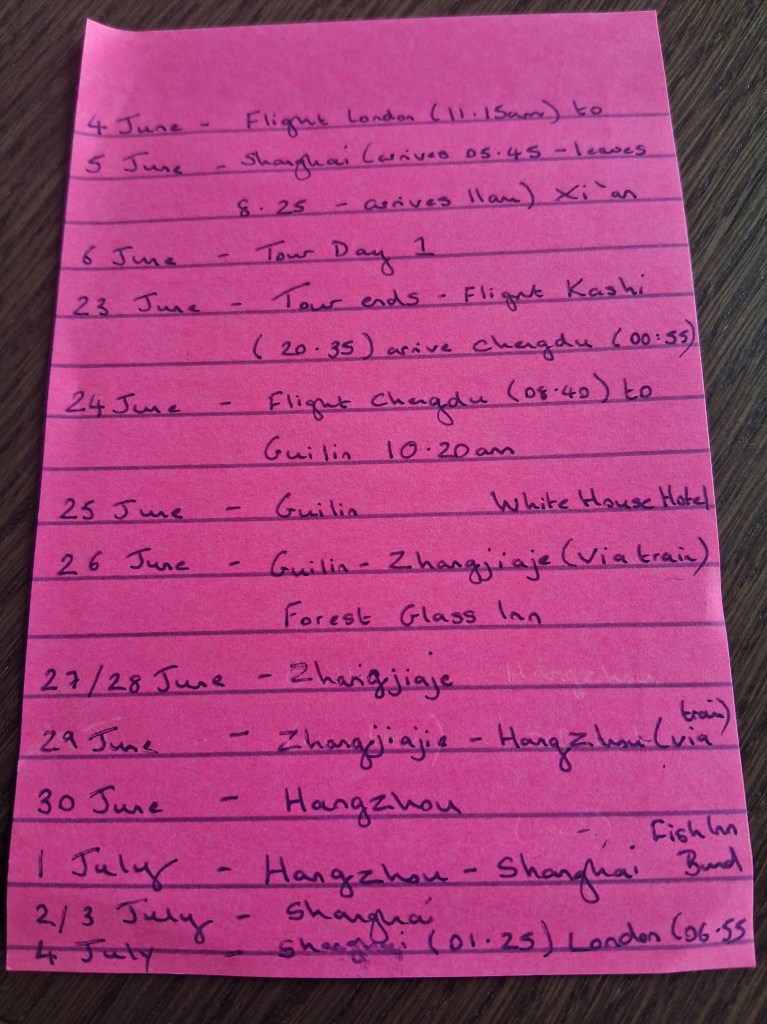 4 June - Flight London (11.15am) to
5 June - Shanghai (arrives 05.45 - leaves
8.25 - arrives 11am) Xi'an
6 June - Tour Day 1
23 June - Tour ends - Flight Kashi
(20.35) arive Chengdu (00:55)
24 June - Flight Chengdu (08.40) to
Guilin 10.20am
25 June - Guilin White House Hotel
26 June - Guilin - Zhangjiaje (via train)
Forest Glass Inn
27/28 June - Zhangjiaje
29 June - Zhangjiajie - Hangzhou (via train)
30 June - Hangzhou
Fish Inn
1 July - Hangzhou - Shanghai Bund
2/3 July - Shanghai
4 July - Shanghai (01.25) London (06.55